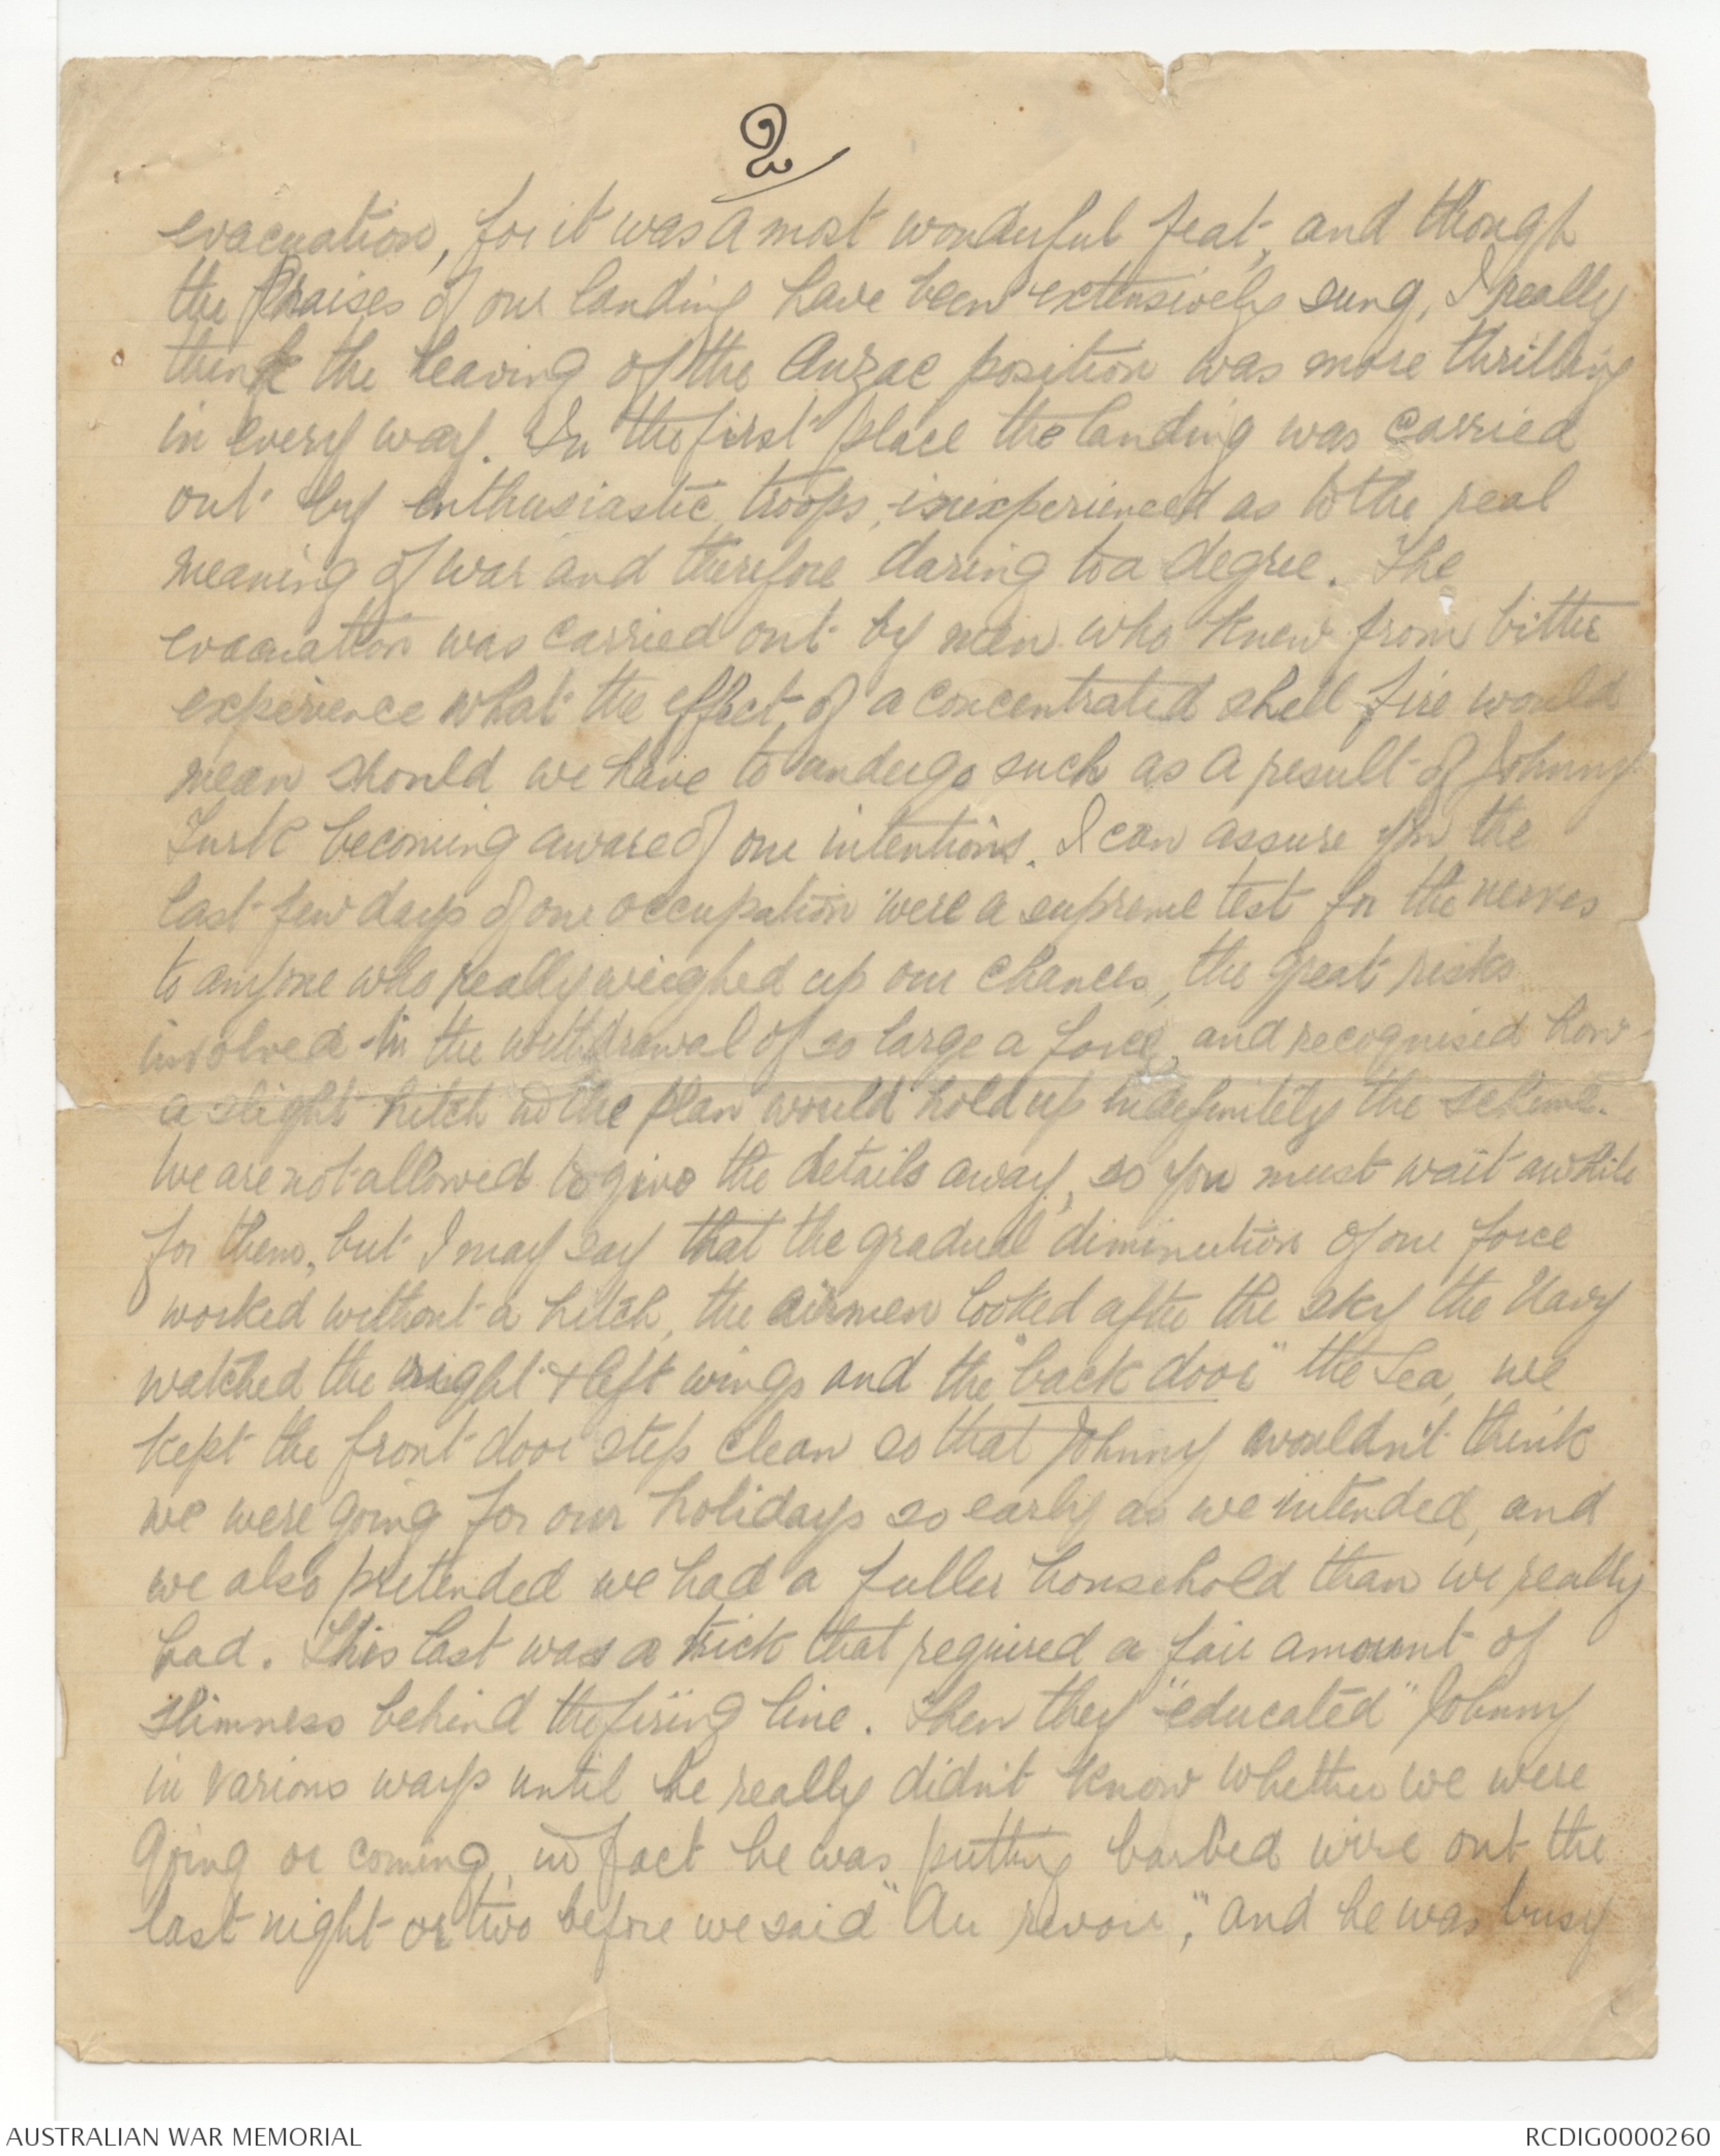 2
evacuation, for it was a most wonderful feat, and though
the praises of our landing have been extensively sung, I really
think the leaving of the Anzac position was more thrilling
in every way. In the first place the landing was carried
out by enthusiastic troops, inexperienced as to the real
meaning of war and therefore daring to a degree. The
evacuation was carried out by men who knew from bitter
experience what the effect of a concentrated shell fire would
mean should we have to undergo such as a result of Johnny
Turk becoming aware of our intentions. I can assure you the
last few days of our occupation were a supreme test for the nerves
to anyone who really weighed up our chances, the great risks
involved in the withdrawal of so large a force, and recognised how
a slight hitch in the plan would hold up indefinitely the scheme.
We are not allowed to give the details away, so you must wait awhile
for them, but I may say that the gradual diminution of our force
worked without a hitch, the airmen looked after the sky the Navy
watched the right & left wings and the "back door" the sea, we
kept the front door step clean so that Johnny wouldn't think
we were going for our holidays so early as we intended, and
we also pretended we had a fuller household than we really
had. This last was a trick that required a fair amount of
slimness behind the firing line. Then they "educated" Johnny
in various ways until he really didn't know whether we were
going or coming, in fact he was putting barbed wire out the
last night or two before we said "Au revoir," and he was busy
AUSTRALIAN WAR MEMORIAL
RCDIG0000260